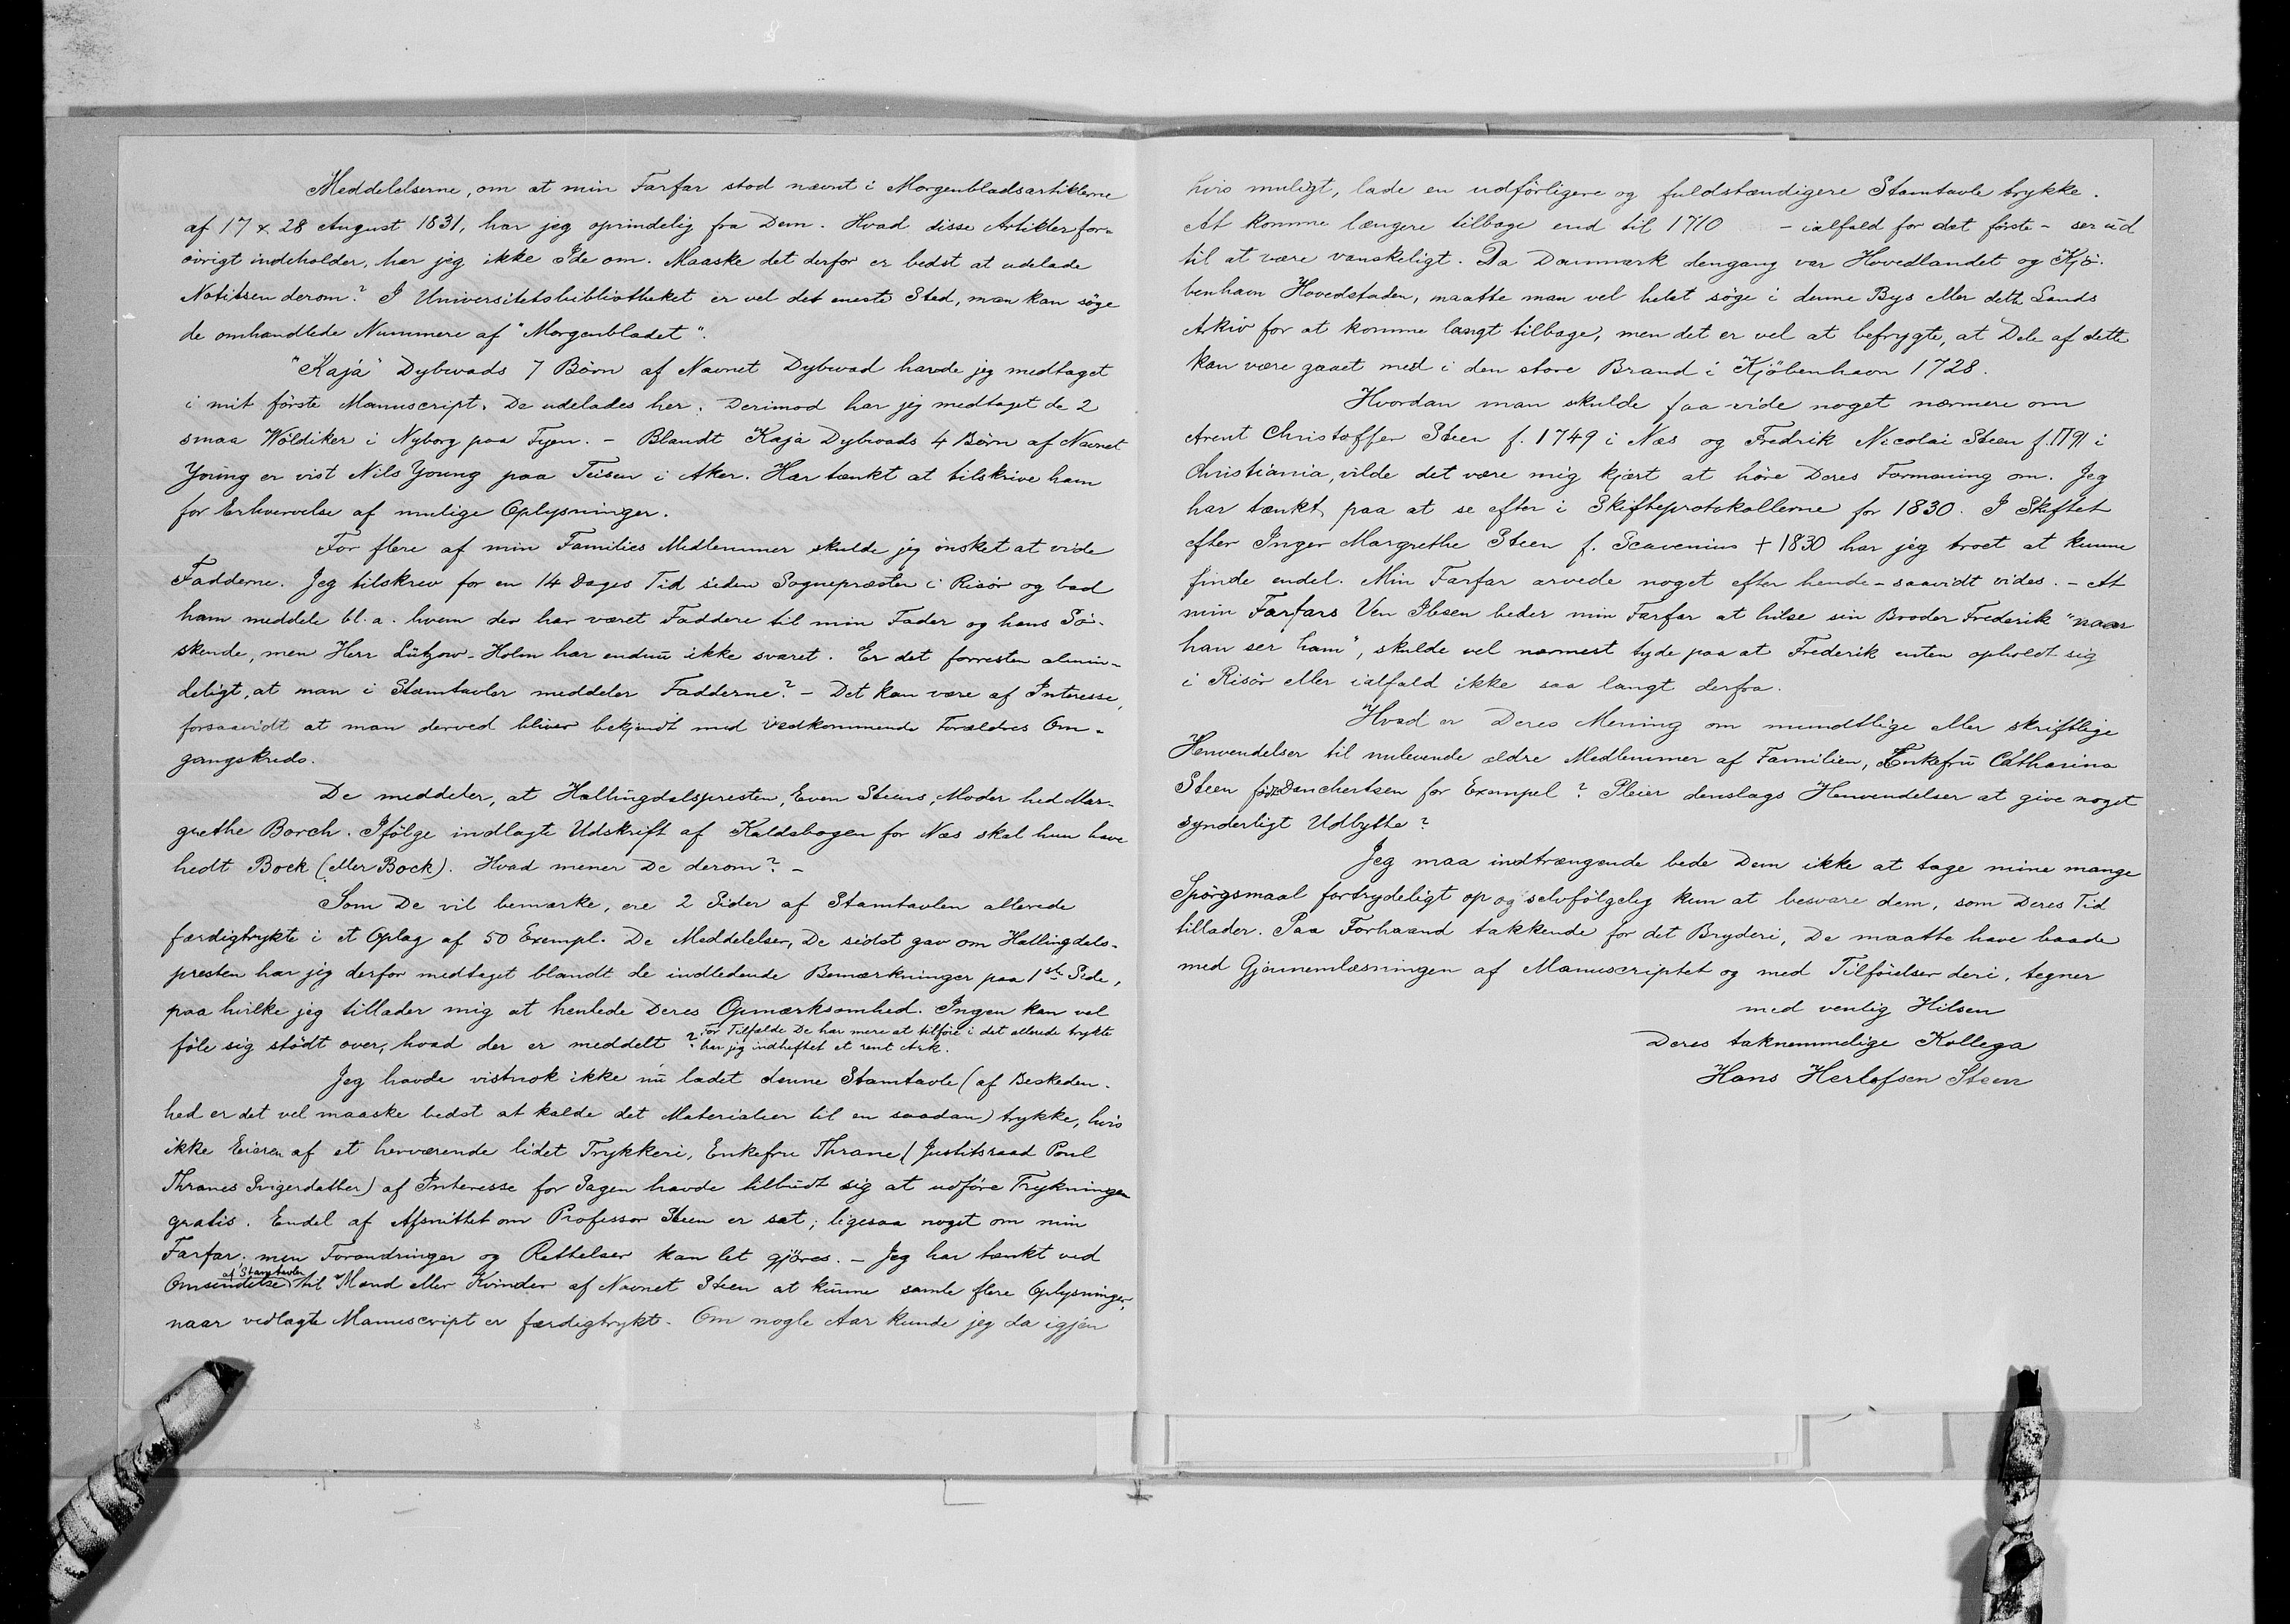 Meddelelserne, om at min Farfar stod nævnt i Morgenbladsartiklerne
af 17 & 28 August 1831, har jeg oprindelig fra Dem. Hvad disse Artikler for-
övrigt indeholder, har jeg ikke Ide om. Maaske det derfor er bedst at udelade
Notitsen derom? I Universitetsbibliotheket er vel det eneste Sted, man kan söge
de omhandlede Nummere af "Morgenbladet".
"Kaja" Dybwads 7 Börn af Navnet Dybwad havde jeg medtaget
i mit förste Manuscript. De udelades her. Derimod har jeg medtaget de 2
smaa Wöldiker i Nyborg paa Fyen. - Blandt Kaja Dybwads 4 Börn af Navnet
Young er vist Nils Young paa Teisen i Aker. Har tænkt at tilskrive ham
for Erhvervelse af mulige Oplysninger.
For flere af min Families Medlemmer skulde jeg önsket at vide
Fadderne. Jeg tilskrev for en 14 Dages Tid siden Sognepræsten i Risör og bad
ham meddele bl. a. hvem der har været Faddere til min Fader og hans Sö-
skende, men Herr Lützow-Holm har endnu ikke svaret. Er det forresten almin-
deligt, at man i Stamtavler meddeler Fadderne? - Det kan være af Interesse,
forsaavidt at man derved bliver bekjendt med Vedkommende Forældres Om-
gangskreds.
De meddeler, at Hallingdalspresten, Even Steens, Moder hed Mar-
grethe Borch. Ifölge indlagte Udskrift af Kaldsbogen for Næs skal hun have
hedt Boek (eller Bock). Hvad mener De derom? -
Som De vil bemærke, ere 2 Sider af Stamtavlen allerede
færdigtrykte i et Oplag af 50 Exempl. De Meddelelser, De sidst gav om Hallingdals-
presten har jeg derfor medtaget blandt de indledende Bemærkninger paa 1ste Side,
paa hvilke jeg tillader mig at henlede Deres Opmærksomhed. Ingen kan vel
föle sig stödt over, hvad der er meddelt? For Tilfælde De har mere at tilföie i det allerede trykte
har jeg indheftet et rent Ark.
Jeg havde vistnok ikke nu ladet denne Stamtavle (af Beskeden-
hed er det vel maaske bedst at kalde det Materialier til en saadan) trykke, hvis
ikke Eieren af et herværende lidet Trykkeri, Enkefru Thrane (Justitsraad Poul
Thranes Svigerdatter) af Interesse for Sagen havde tilbudt sig at udföre Trykningen
gratis. Endel af Afsnittet om Professor Steen er sat; ligesaa noget om min
Farfar; men Forandringer og Rettelser kan let gjöres. - Jeg har tænkt ved
af Stamtavlen
Omsendelse til Mænd eller Kvinder af Navnet Steen at kunne samle flere Oplysninger,
naar vedlagte Manuscript er færdigtrykt. Om nogle Aar kunde jeg da igjen
hvis muligt, lade en udförligere og fuldstændigere Stamtavle trykke.
At komme længere tilbage end til 1710 - ialfald for det förste - ser ud
til at være vanskeligt. Da Danmark dengang var Hovedlandet og Kjö-
benhavn Hovedstaden, maatte man vel helst söge i denne Bys eller dette Lands
Arkiv for at komme langt tilbage, men det er vel at befrygte, at Dele af dette
kan være gaaet med i den store Brand i Kjöbenhavn 1728.
Hvordan man skulde faa vide noget nærmere om
Arent Christoffer Steen f. 1749 i Næs og Fredrik Nicolai Steen f. 1791 i
Christiania, vilde det være mig kjært at höre Deres Formening om. Jeg
har tænkt paa at se efter i Skifteprotokollerne for 1830. I Skiftet
efter Inger Margrethe Steen f. Scavenius + 1830 har jeg troet at kunne
finde endel. Min Farfar arvede noget efter hende - saavidt vides. - At
min Farfars Ven Ibsen beder min Farfar at hilse sin Broder Frederik "naar
han ser ham", skulde vel nærmest tyde paa at Frederik enten opholdt sig
i Risör eller ialfald ikke saa langt derfra.
Hvad er Deres Mening om mundtlige eller skriftlige
Henvendelser til nulevende ældre Medlemmer af Familien, Enkefru Catharina
Steen född Danchertsen for Exempel? Pleier denslags Henvendelser at give noget
synderligt Udbytte?
Jeg maa indtrængende bede Dem ikke at tage mine mange
Spörgsmaal fortrydeligt op og selvfölgelig kun at besvare dem, som Deres Tid
tillader. Paa Forhaand takkende for det Bryderi, De maatte have baade
med Gjennemlæsningen af Manuscriptet og med Tilföielser deri, tegner
med venlig Hilsen
Deres taknemmelige Kollega
Hans Herlofsen Steen